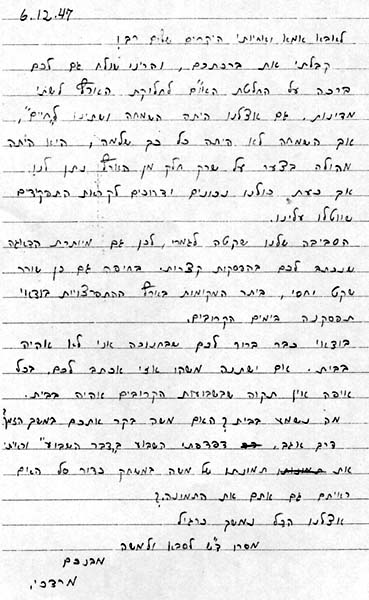 6.12.47
לאבא אמא ואחיותי היקרים שלום רב!
קבלתי את ברכתכם, והריני שולח גם לכם
ברכה על החלטת האו"ם לחלוקת הארץ לשתי
מדינות. גם אצלנו היתה השמחה ושתינו "לחיים",
אך השמחה לא היתה כל כך שלמה, היא היתה
מהולה בצער על שרק חלק מן הארץ נתן לנו.
אך כעת כולנו נכונים ודרוכים לקראת התפקידים
שיוטלו עלינו.
הסביבה שלנו שקטה לגמרי, לכן גם מיותרת הדאגה
שנכתב לכם בהפסקות קצרות. בחיפה גם כן שורר
שקט יחסי, ביתר המקומות בארץ ההתפרצויות בודאי
תפסקנה בימים הקרובים.
בודאי כבר ברור לכם שבחנוכה אני לא אהיה
בבית. אם ישתנה משהו אזי אכתב לכם. בכל
איפה אין תקוה שבשבועות הקרובים אהיה בבית.
מה נשמע בבית? האם משה בקר אתכם במשך הזמן?
דרך אגב, דפדפתי השבוע ב"דבר השבוע" וראיתי
את תמונתו של משה במשחק כדור סל האם
ראיתם גם אתם את התמונה?
אצלנו הכל נמשך כרגיל
מסרו ד"ש לסבא ולמשה
מבנכם
מרדכי.